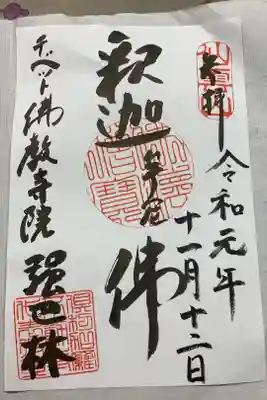 奉拝
令和元年
十一月十二日
釈迦牟尼佛
チベット佛教寺院
強巴林